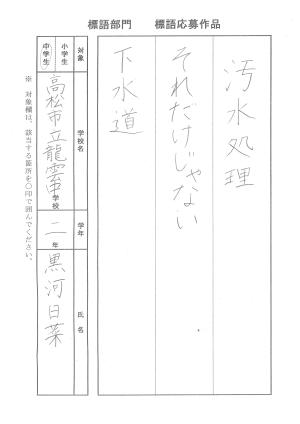 標語部門　標語応募作品
汚水処理
それだけじゃない
下水道
対象
小学生
中学生
学校名
高松市立龍雲中学校
学年
二年
氏名
黒河日菜
※　対象欄は、該当する箇所を〇印で囲んでください。